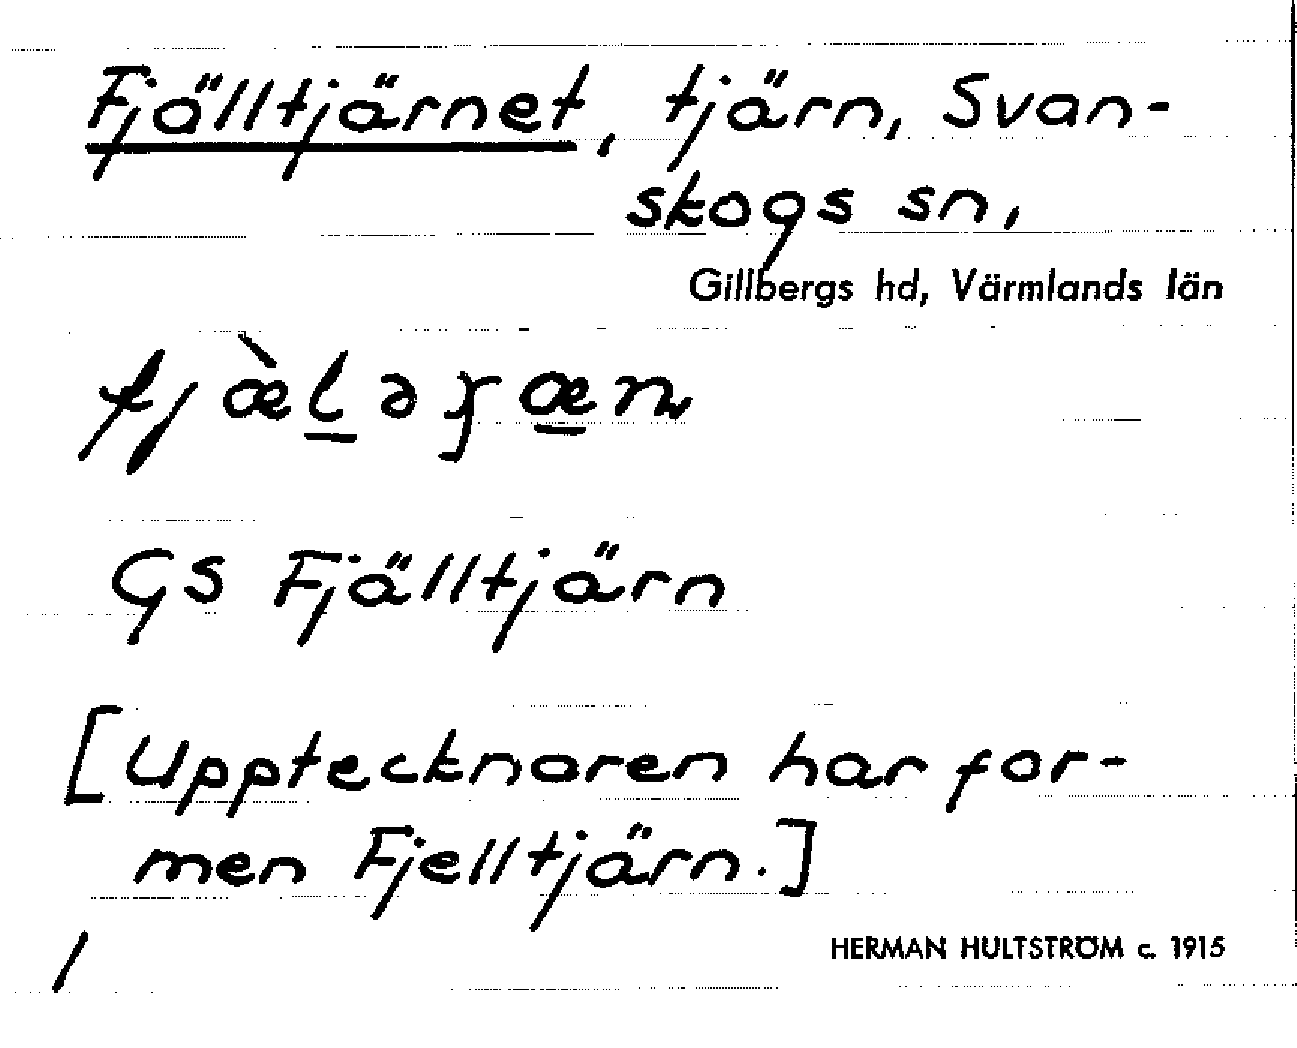 Fjälltjärnet, tjärn, Svan-
skogs sn,
Gillbergs hd, Värmlands län
GS Fjälltjärn
[Upptecknaren har for-
men Fjelltjärn.]
/
HERMAN HULTSTRÖM c. 1915